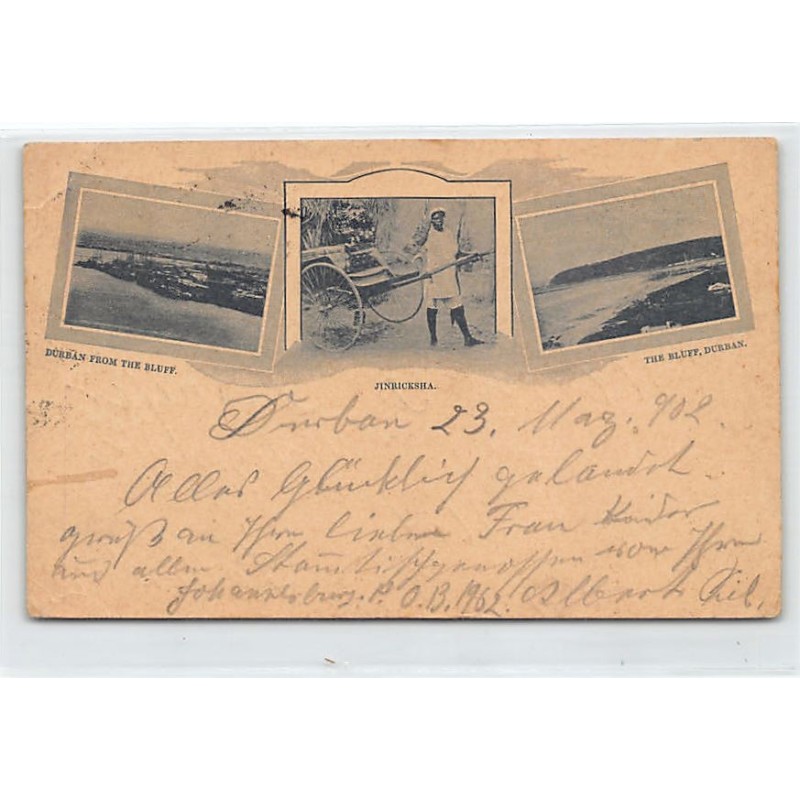 DURBAN FROM THE BLUFF.
JINRICKSHA.
THE BLUFF, DURBAN.
Durban 23. 902.
Alles Glücklich gelandet.
gruß an Ihre liebe Frau
und allen Stammtischgenossen von Ihrem
Johannesburg. P.O.B. 1962. Albert